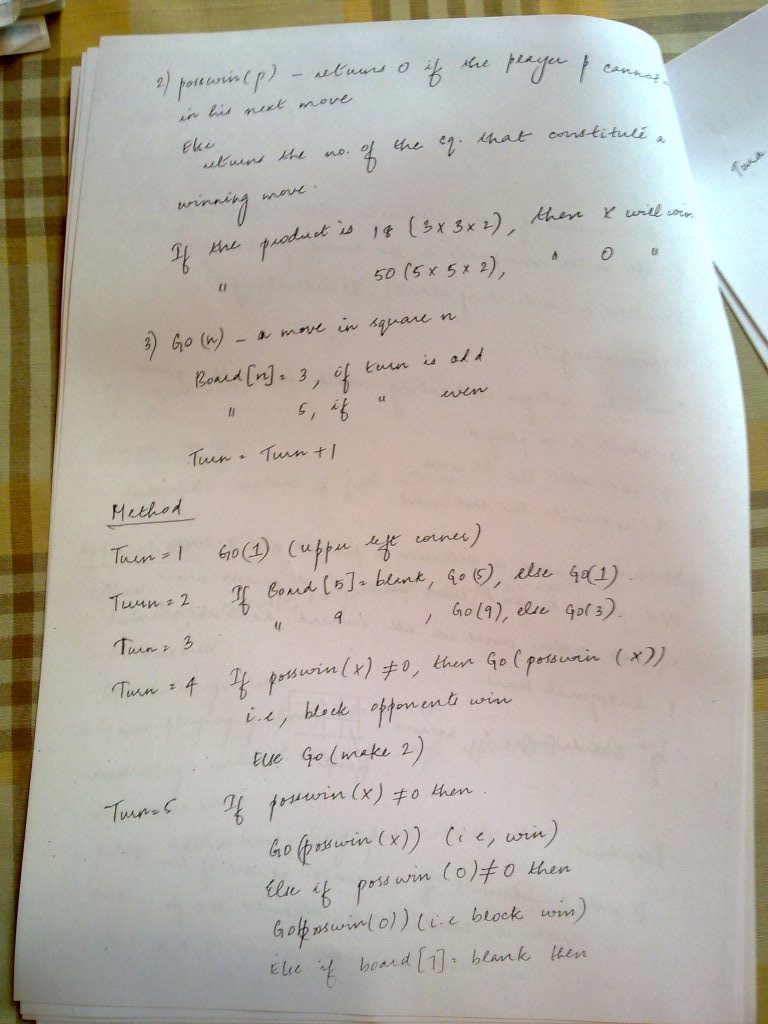 2) posswin(p) - returns 0 if the player p cannot
in his next move
Else
returns the no. of the sq. that constitute a
winning move.
If the product is 18 (3x3x2), then X will win
" 50 (5x5x2), " O "
3) Go(n) - a move in square n
Board[n] = 3, if turn is odd
" 5, if " even
Turn = Turn +1
Method
Turn = 1 Go(1) (upper left corner)
Turn = 2 If Board [5] = blank, Go(5), else Go(1).
Turn = 3 " 9 , Go(9), else Go(3).
Turn = 4 If posswin(x) ≠0, then Go(posswin (x))
i.e, block opponents win
Else Go(make 2)
Turn=5 If posswin(x) ≠0 then.
Go(posswin(x)) (i.e, win)
Else if posswin (0)≠0 then
Go(posswin(0)) (i.e block win)
Else if board[7] = blank then
Turn